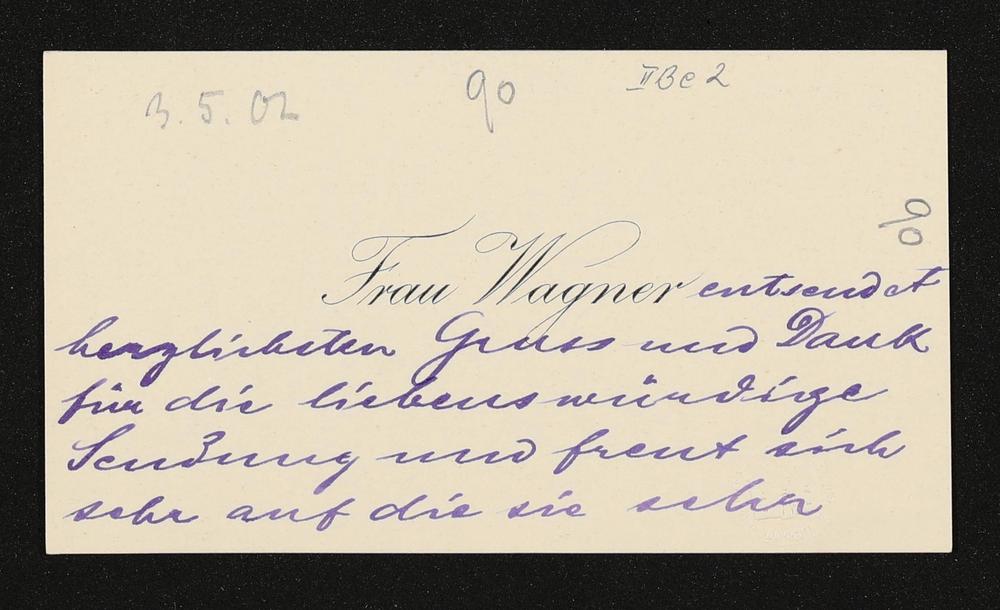 3.5.02
90
II Be 2
90
Frau Wagner entsendet
herzlichsten Gruss und Dank
für die liebenswürdige
Sendung und freut sich
sehr auf die sie sehr